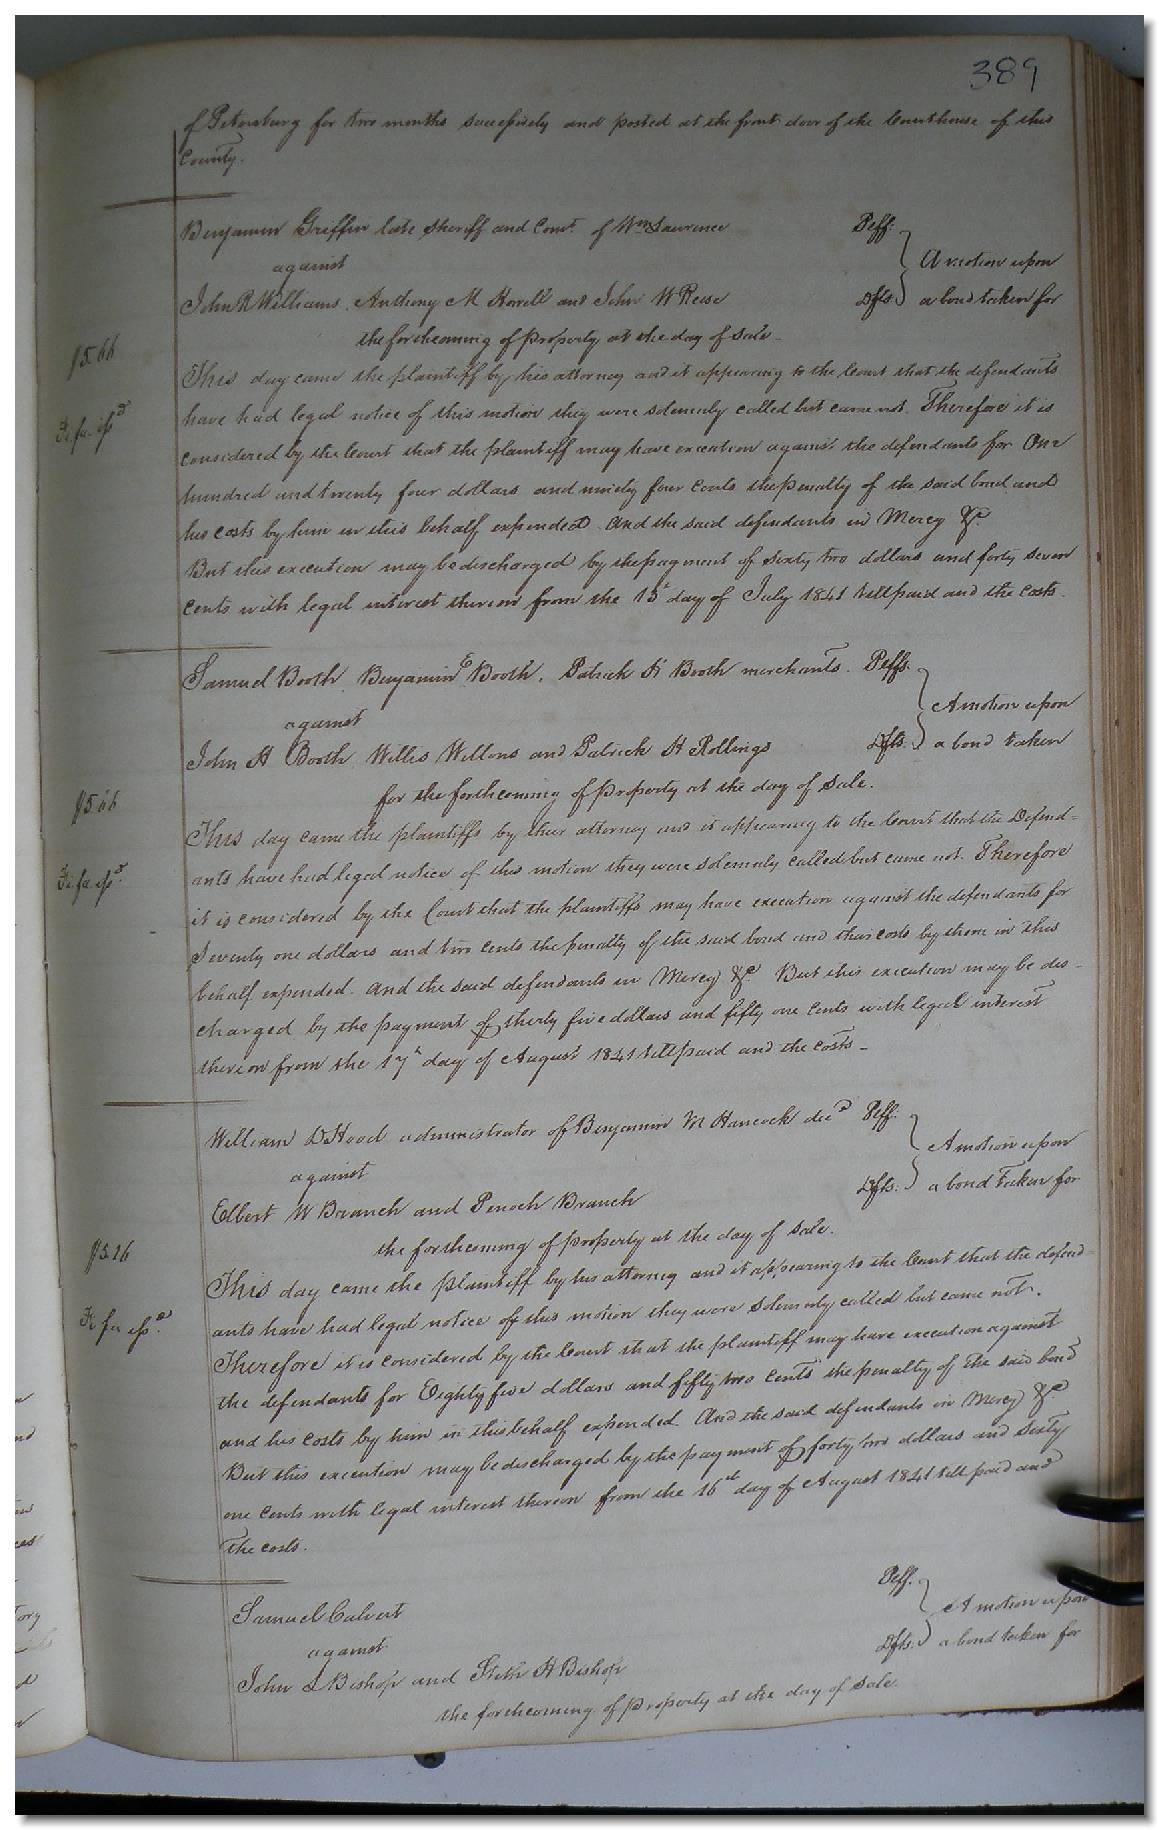 389
of Petersburg for two months successively and posted at the front door of the Courthouse of this
County.
Benjamin Griffin late sheriff and Comt. of Wm Lawrence Plff.
against
A motion upon
John R Williams, Anthony M Horrell and John W Reese Dfts. a bond taken for
the forthcoming of property at the day of sale.
$5.66
This day came the plaintiff by his attorney and it appearing to the Court that the defendants
have had legal notice of this motion they were solemnly called but came not. Therefore it is
Fi. fa. issd
considered by the Court that the plaintiff may have execution against the defendants for One
hundred and twenty four dollars and ninety four cents the penalty of the said bond and
his costs by him in this behalf expended. And the said defendants in Mercy &c
But this execution may be discharged by the payment of sixty two dollars and forty seven
cents with legal interest thereon from the day of July 1841 till paid and the costs.
Samuel Booth, Benjamin E Booth, Patrick H Booth merchants. Plffs.
against
A motion upon
John H Booth Willis Wellons and Patrick H Rollings Dfts. a bond taken
for the forthcoming of property at the day of sale.
$5.66
This day came the plaintiffs by their attorney and it appearing to the Court that the Defend=
ants have had legal notice of this motion they were solemnly called but came not. Therefore
Fi. fa. issd.
it is considered by the Court that the plaintiffs may have execution against the defendants for
Seventy one dollars and two cents the penalty of the said bond and their costs by them in this
behalf expended. And the said defendants in Mercy &c But this execution may be dis-
charged by the payment of thirty five dollars and fifty one cents with legal interest
thereon from the 17h day of August 1841 till paid and the costs-
William D Hood administrator of Benjamin M Hancock decd Plff.
against
A motion upon
Elbert W Branch and Branch Dfts. a bond Taken for
the forthcoming of property at the day of sale.
$5.26
This day came the plaintiff by his attorney and it appearing to the Court that the defend-
ants have had legal notice of this motion they were solemnly called but came not.
Fi fa issd.
Therefore it is considered by the Court that the plaintiff may have execution against
the defendants for Eighty five dollars and fifty two cents the penalty of the said bond
and his costs by him in this behalf expended. And the said defendants in Mercy &c
But this execution may be discharged by the payment of forty two dollars and sixty
one cents with legal interest thereon from the 16th day of August 1841 till paid and
the costs.
Samuel Calvert Plff.
against
A motion upon
John L Bishop and Stith H Bishop Dfts. a bond taken for
the forthcoming of property at the day of sale.